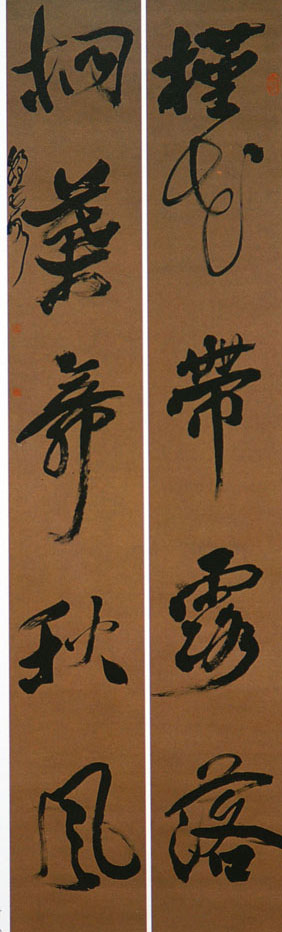 槿花帶露落
桐葉舞秋風